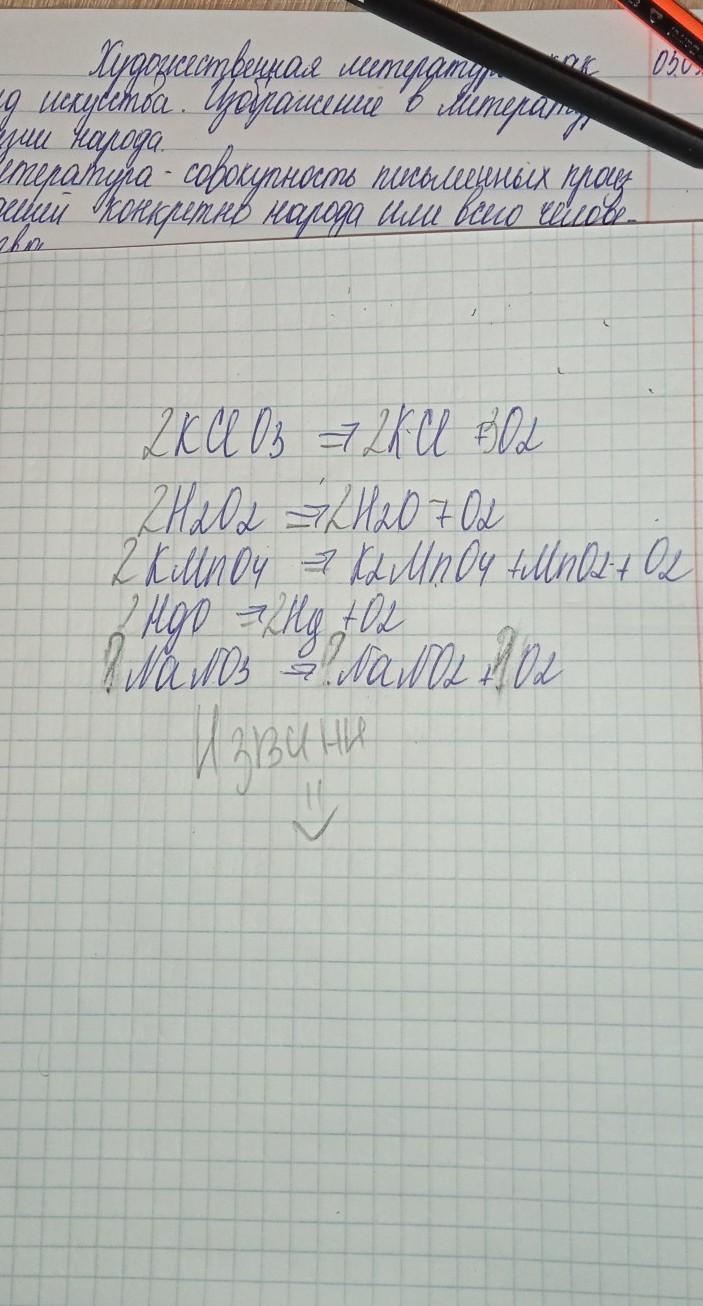 Художественная литература как 05.0
д искусства. Изображение в литерату
зни народа.
итература - совокупность письменных произ
дений конкретно народа или всего челове-
ва.
2KClO3 ⇒ 2KCl + 3O2
2H2O2 ⇒ 2H2O + O2
2KMnO4 ⇒ K2MnO4 + MnO2 + O2
2HgO ⇒ 2Hg + O2
?NaNO3 ⇒ ?NaNO2 + ?O2
Извини